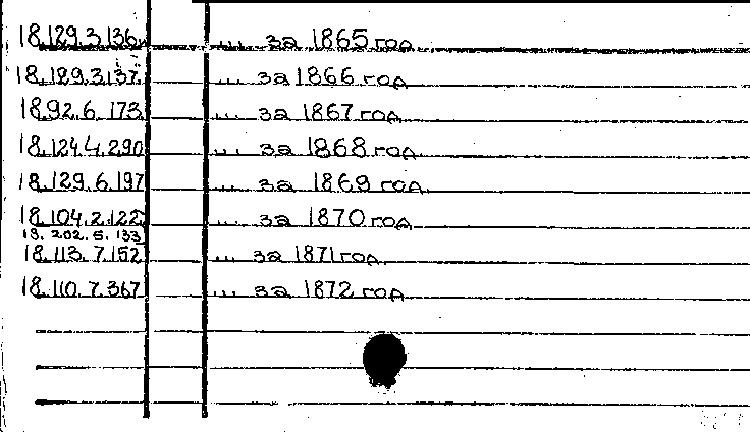 18.129.3.136. ... за 1865 год
18.129.3.137. ... за 1866 год
18.92.6.173 ... за 1867 год
18.124.4.290 ... за 1868 год
18.129.6.197 ... за 1869 год.
18.104.2.122 ... за 1870 год
18.202.5.133
18.113.7.152 ... за 1871 год
18.110.7.367 ... за 1872 год